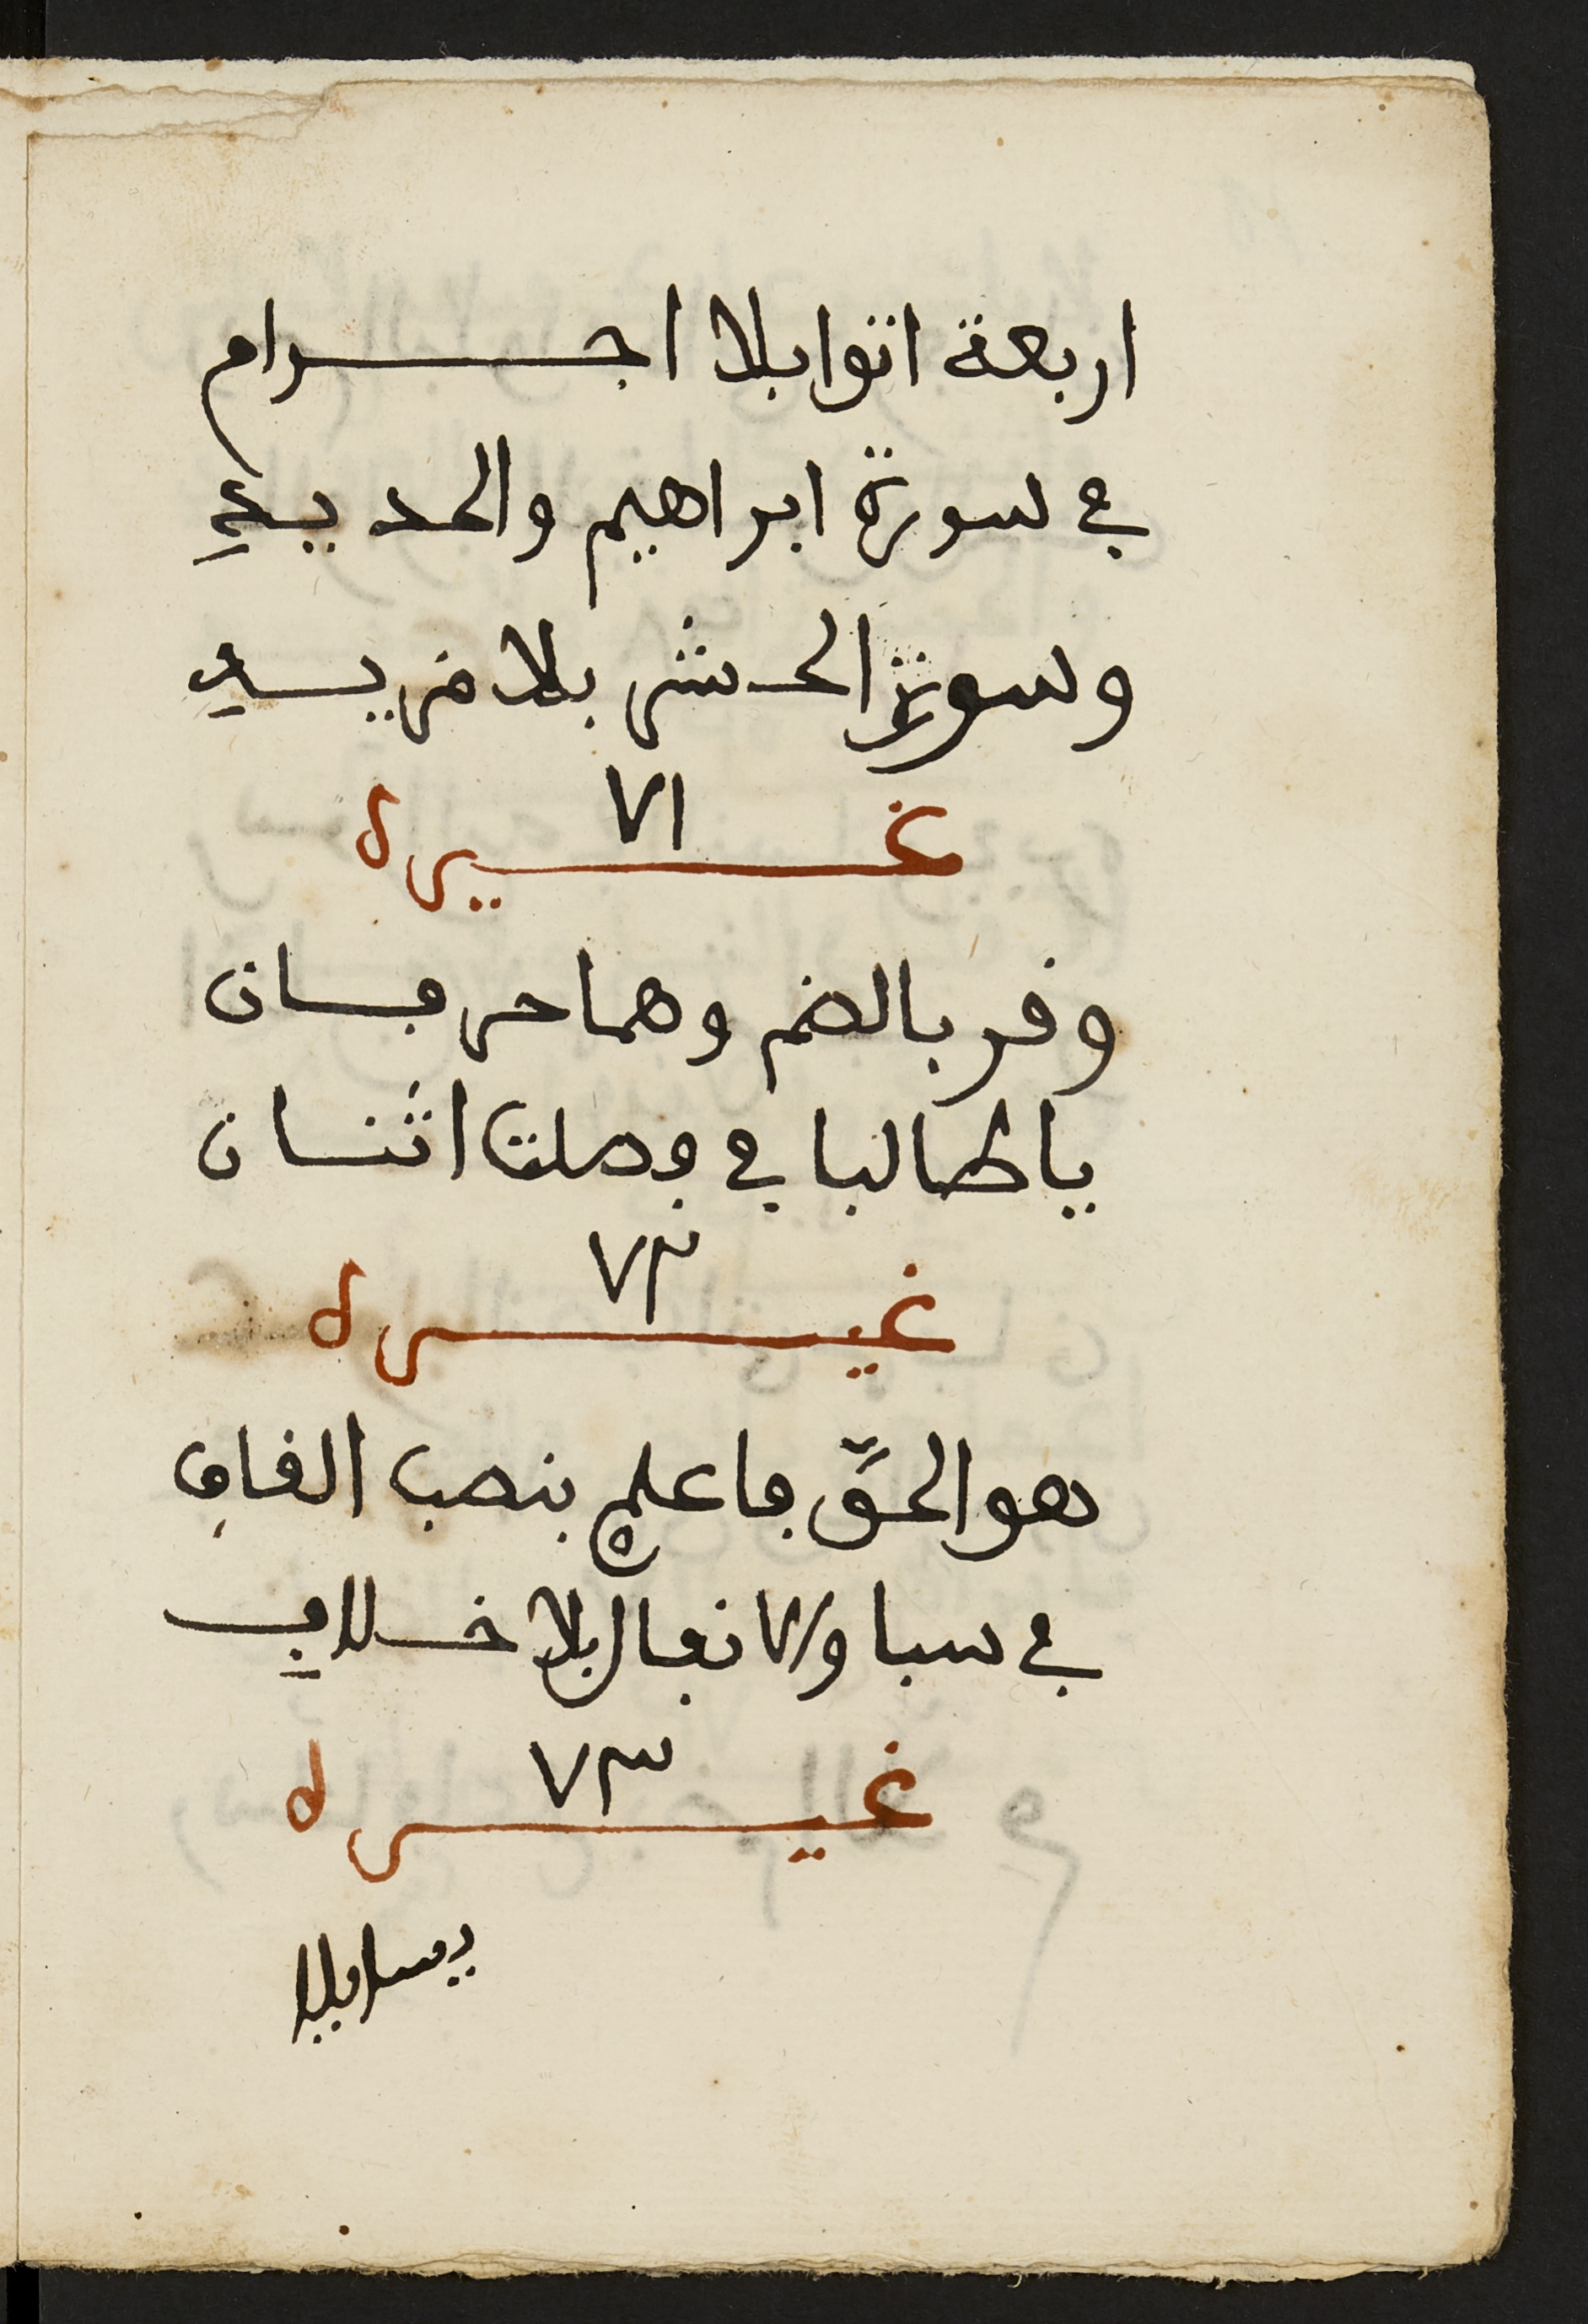 اربعة اتوا بلا اجرام
في سورة ابراهيم والحديد
وسورة الحشر بلا مزيد
٧١
غيره
وقر بالضم وهما حرفان
يا طالبا في فصلت اثنان
٧٢
غيره
هو الحق فاعلم بنصب القاف
في سبا والانفال بلا خلاف
٧٣
غيره